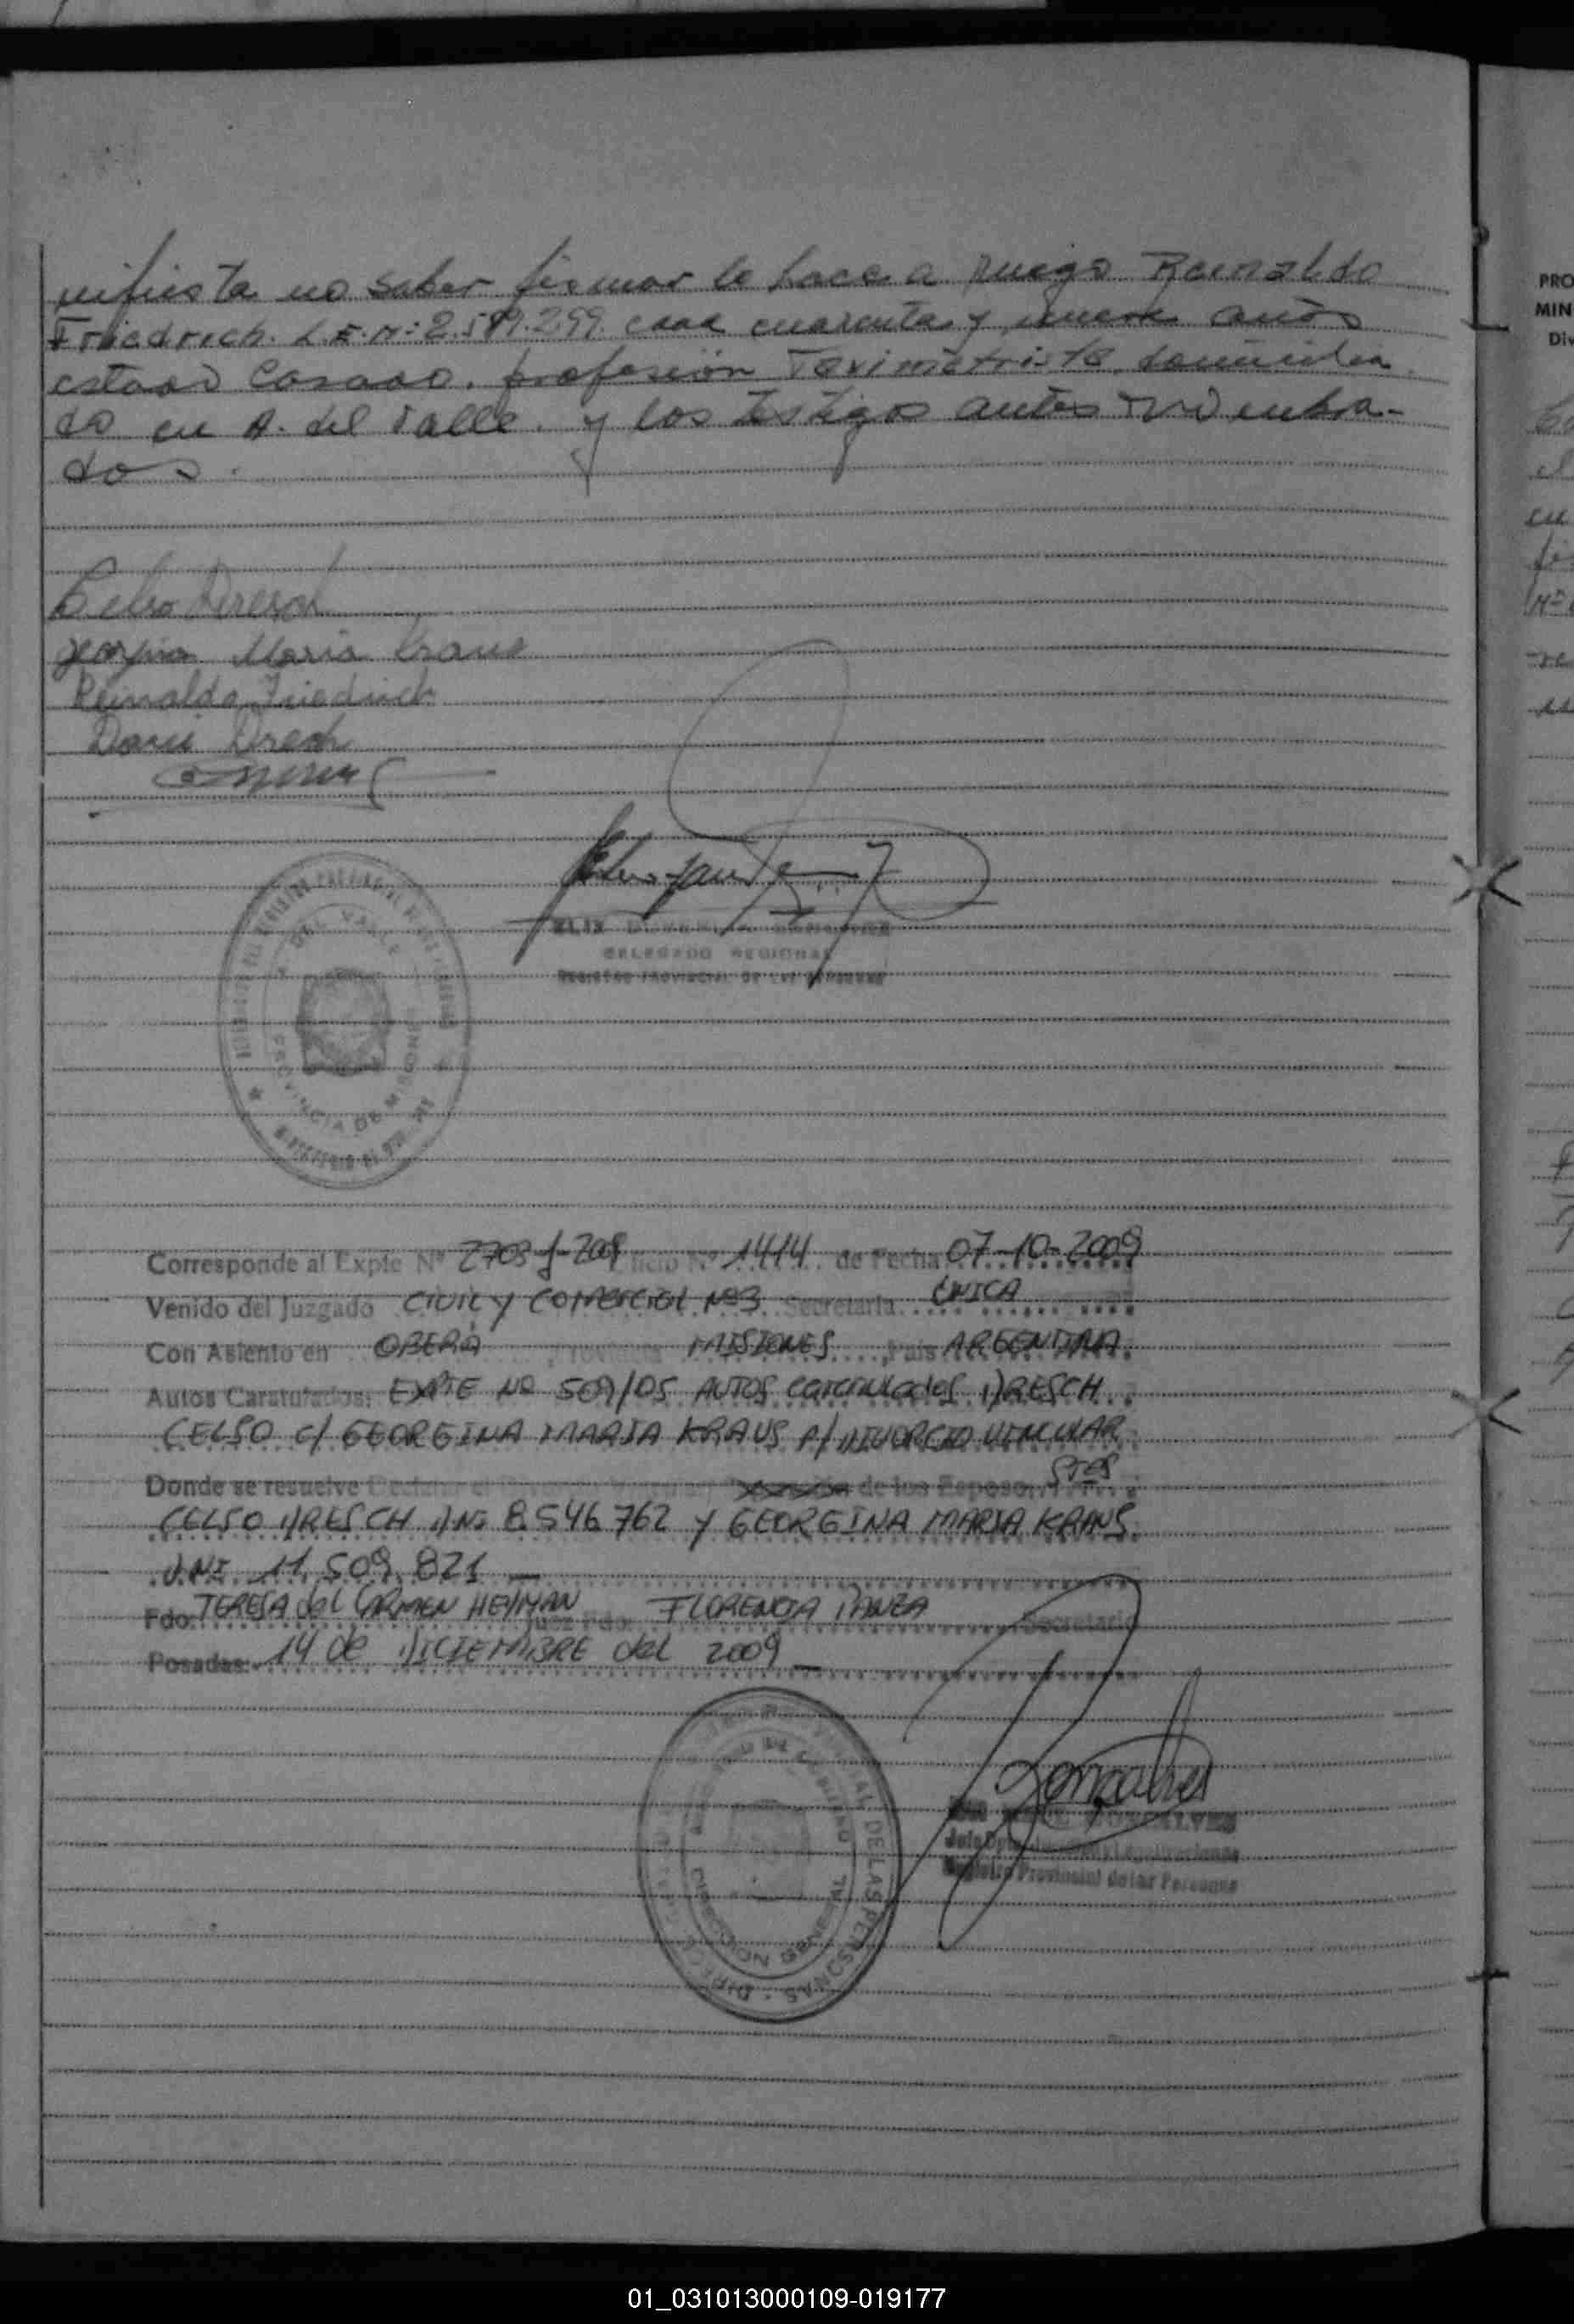 nifiesta no saber firmar lo hace a ruego Reinaldo
Friedrich. L.E.Nº: 2.579.299. edad cuarenta y nueve años
estado Casado. profesión Taximetrista. domicilia
do en A. del Valle. y los testigos antes nombra-
dos.
Celso Dresch
Georgina Maria Kraus
Reinaldo Friedrich
DELEGADO REGIONAL
REGISTRO PROVINCIAL DE LAS PERSONAS
DEL VALLE
PROVINCIA DE MISIONES
Corresponde al Expte Nº 2703-J-2009 Oficio Nº 1414 de Fecha 07-10-2009
Venido del Juzgado CIVIL Y COMERCIAL Nº3 Secretaria ÚNICA
Con Asiento en OBERÁ Provincia MISIONES Pais ARGENTINA
Autos Caratulados: EXPTE Nº 509/05 AUTOS caratulados DRESCH
CELSO c/ GEORGINA MARIA KRAUS P/ DIVORCIO VINCULAR
Donde se resuelve Declarar el de los Esposos Sres
CELSO DRESCH DNI 8.546.762 Y GEORGINA MARIA KRAUS
DNI 11.509.821 —
Fdo: TERESA del CARMEN HEDMAN Juez Fdo: FLORENCIA PANZA Secretario
Posadas: 14 de DICIEMBRE del 2009 —
GONCALVES
Registro Provincial de las Personas
DE LAS PERSONAS
DIRECCION GENERAL
PRO
MIN
Div
01_031013000109-019177